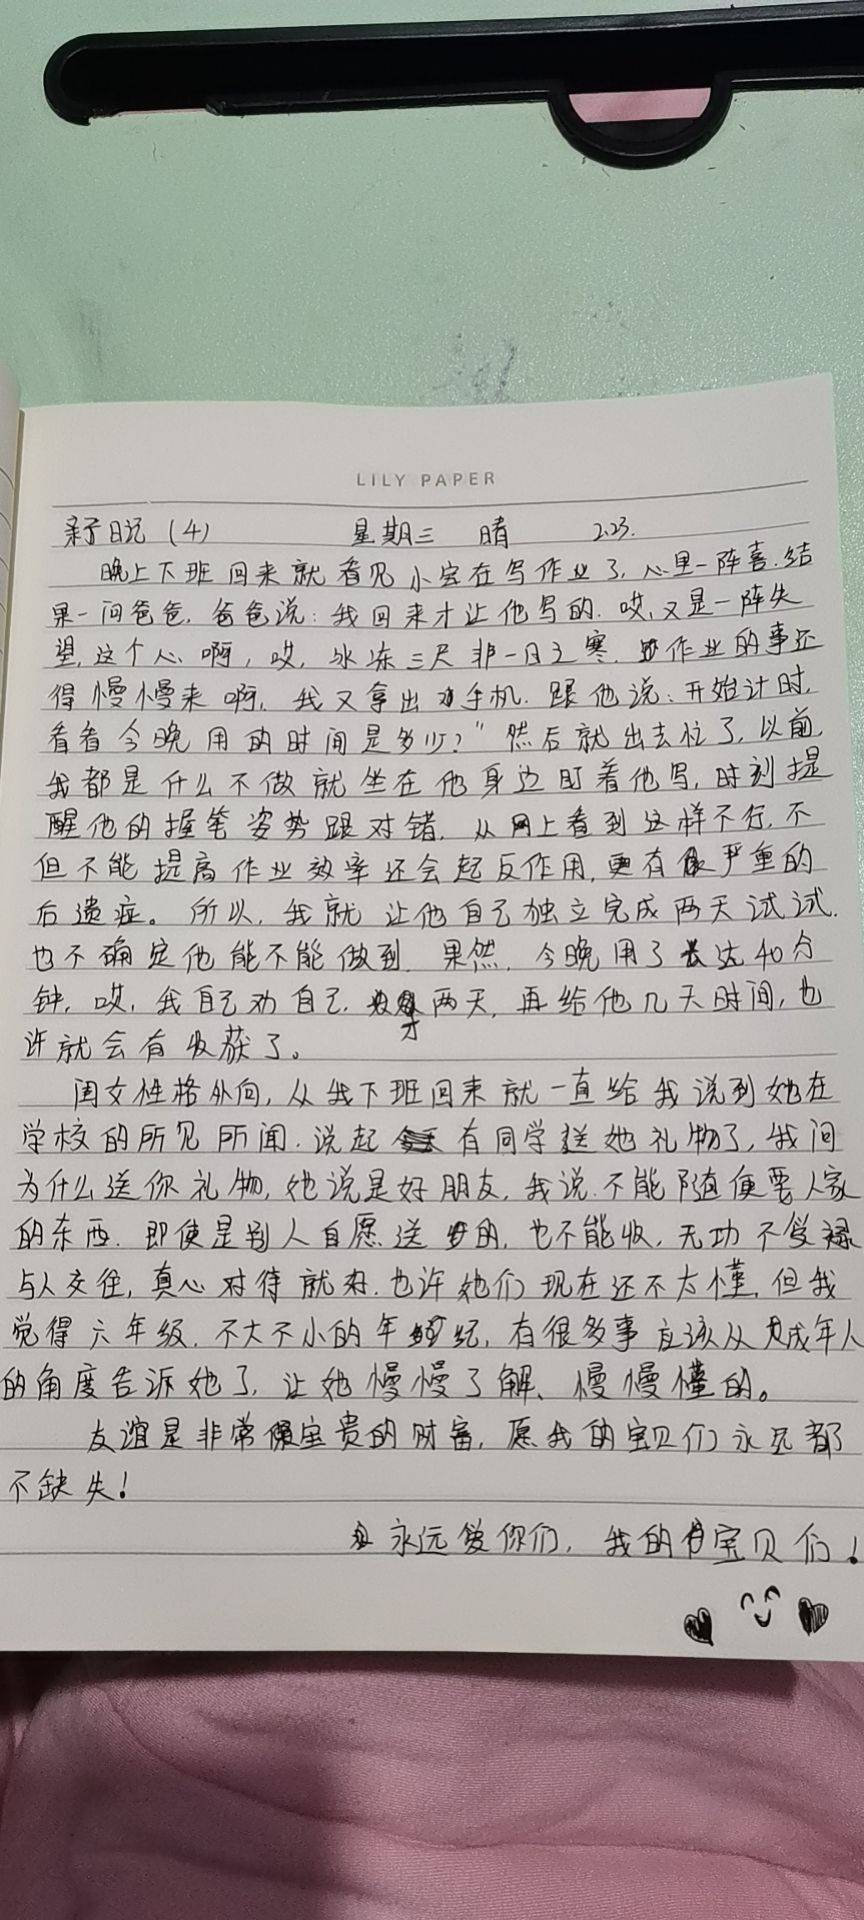 LILY PAPER
亲子日记（4） 星期三 晴 2.23.
晚上下班回来就看见小宝在写作业了，心里一阵喜，结
果一问爸爸，爸爸说：我回来才让他写的，哎，又是一阵失
望，这个心啊，哎，冰冻三尺非一日之寒，作业的事还
得慢慢来啊，我又拿出手机，跟他说：开始计时，
看看今晚用的时间是多少？”然后就出去忙了，以前，
我都是什么不做就坐在他身边盯着他写，时刻提
醒他的握笔姿势跟对错，从网上看到这样不行，不
但不能提高作业效率还会起反作用，更有很严重的
后遗症。所以，我就让他自己独立完成两天试试，
也不确定他能不能做到，果然，今晚用了长达40分
钟，哎，我自己劝自己，才两天，再给他几天时间，也
许就会有收获了。
闺女性格外向，从我下班回来就一直给我说到她在
学校的所见所闻，说起有同学送她礼物了，我问
为什么送你礼物，她说是好朋友，我说不能随便要人家
的东西，即使是别人自愿送的，也不能收，无功不受禄
与人交往，真心对待就好，也许她们现在还不太懂，但我
觉得六年级，不大不小的年纪，有很多事应该从成年人
的角度告诉她了，让她慢慢了解、慢慢懂的。
友谊是非常宝贵的财富，愿我的宝贝们永远都
不缺失！
永远爱你们，我的宝贝们！